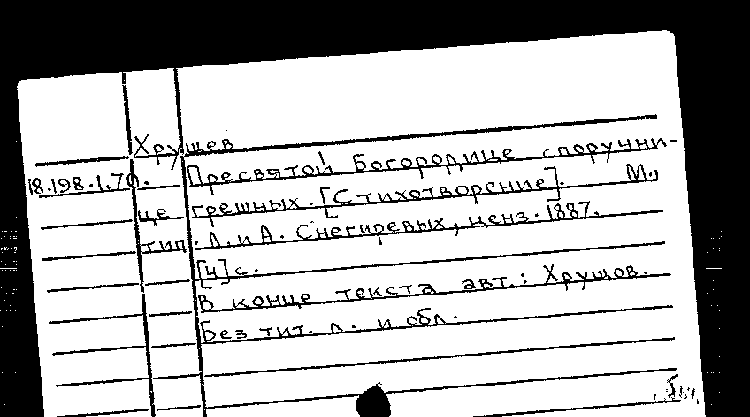 Хрущев
18.198.1.70. Пресвятой Богородице споручни-
це грешных. [Стихотворение]. М.,
тип. Л. и А. Снегиревых, ценз. 1887.
[4] с.
В конце текста авт.: Хрущов.
Без тит. л. и обл.